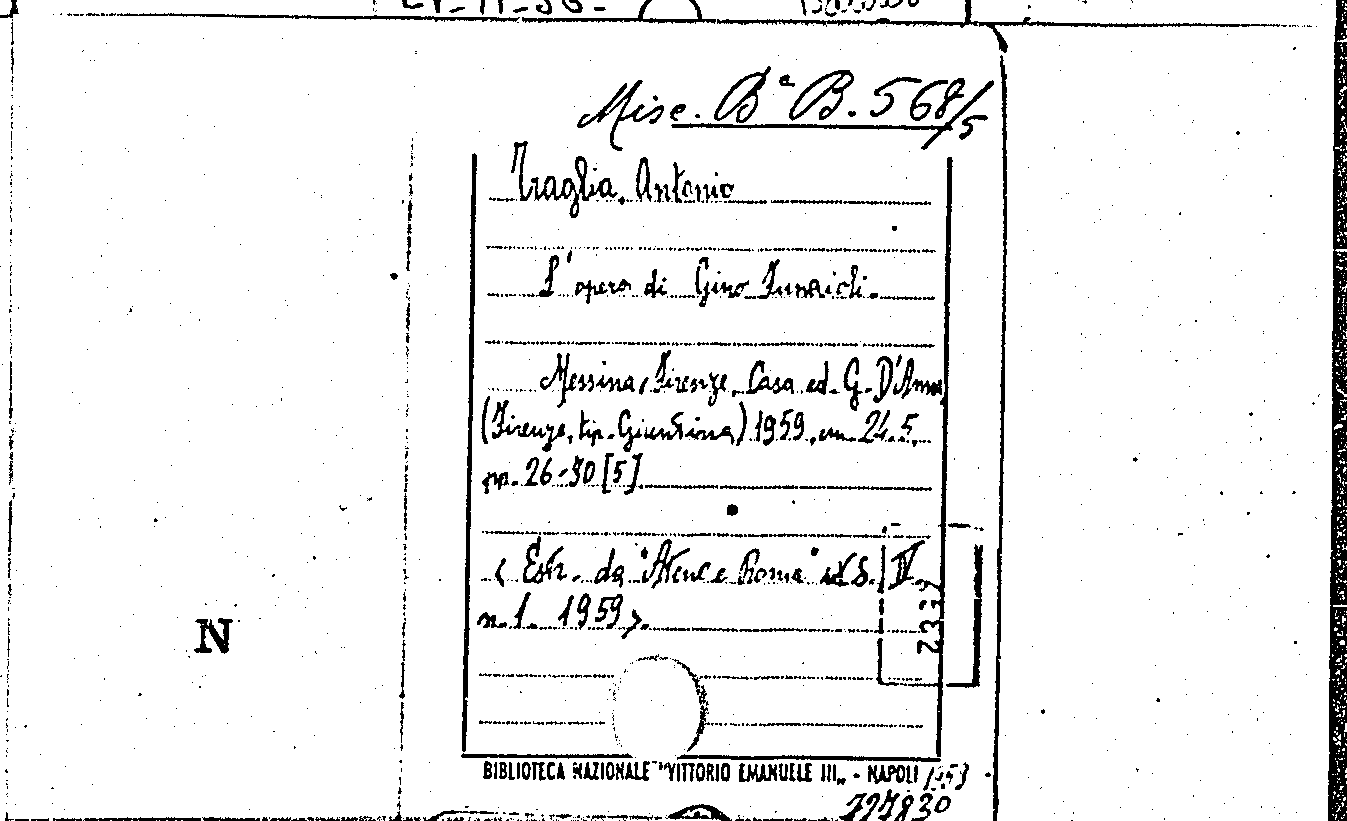 Misc. Bᵃ B. 568/5
Traglia, Antonio
L'opera di Gino Funaioli.
Messina, Firenze, Casa ed. G. D'Anna
(Firenze, tip. Giuntina) 1959, cm. 24.5
pp. 26-30 [5]
< Estr. da "Atene e Roma" S. IV
n. 1. 1959>.
2339
N
BIBLIOTECA NAZIONALE "VITTORIO EMANUELE III„ - NAPOLI
727830